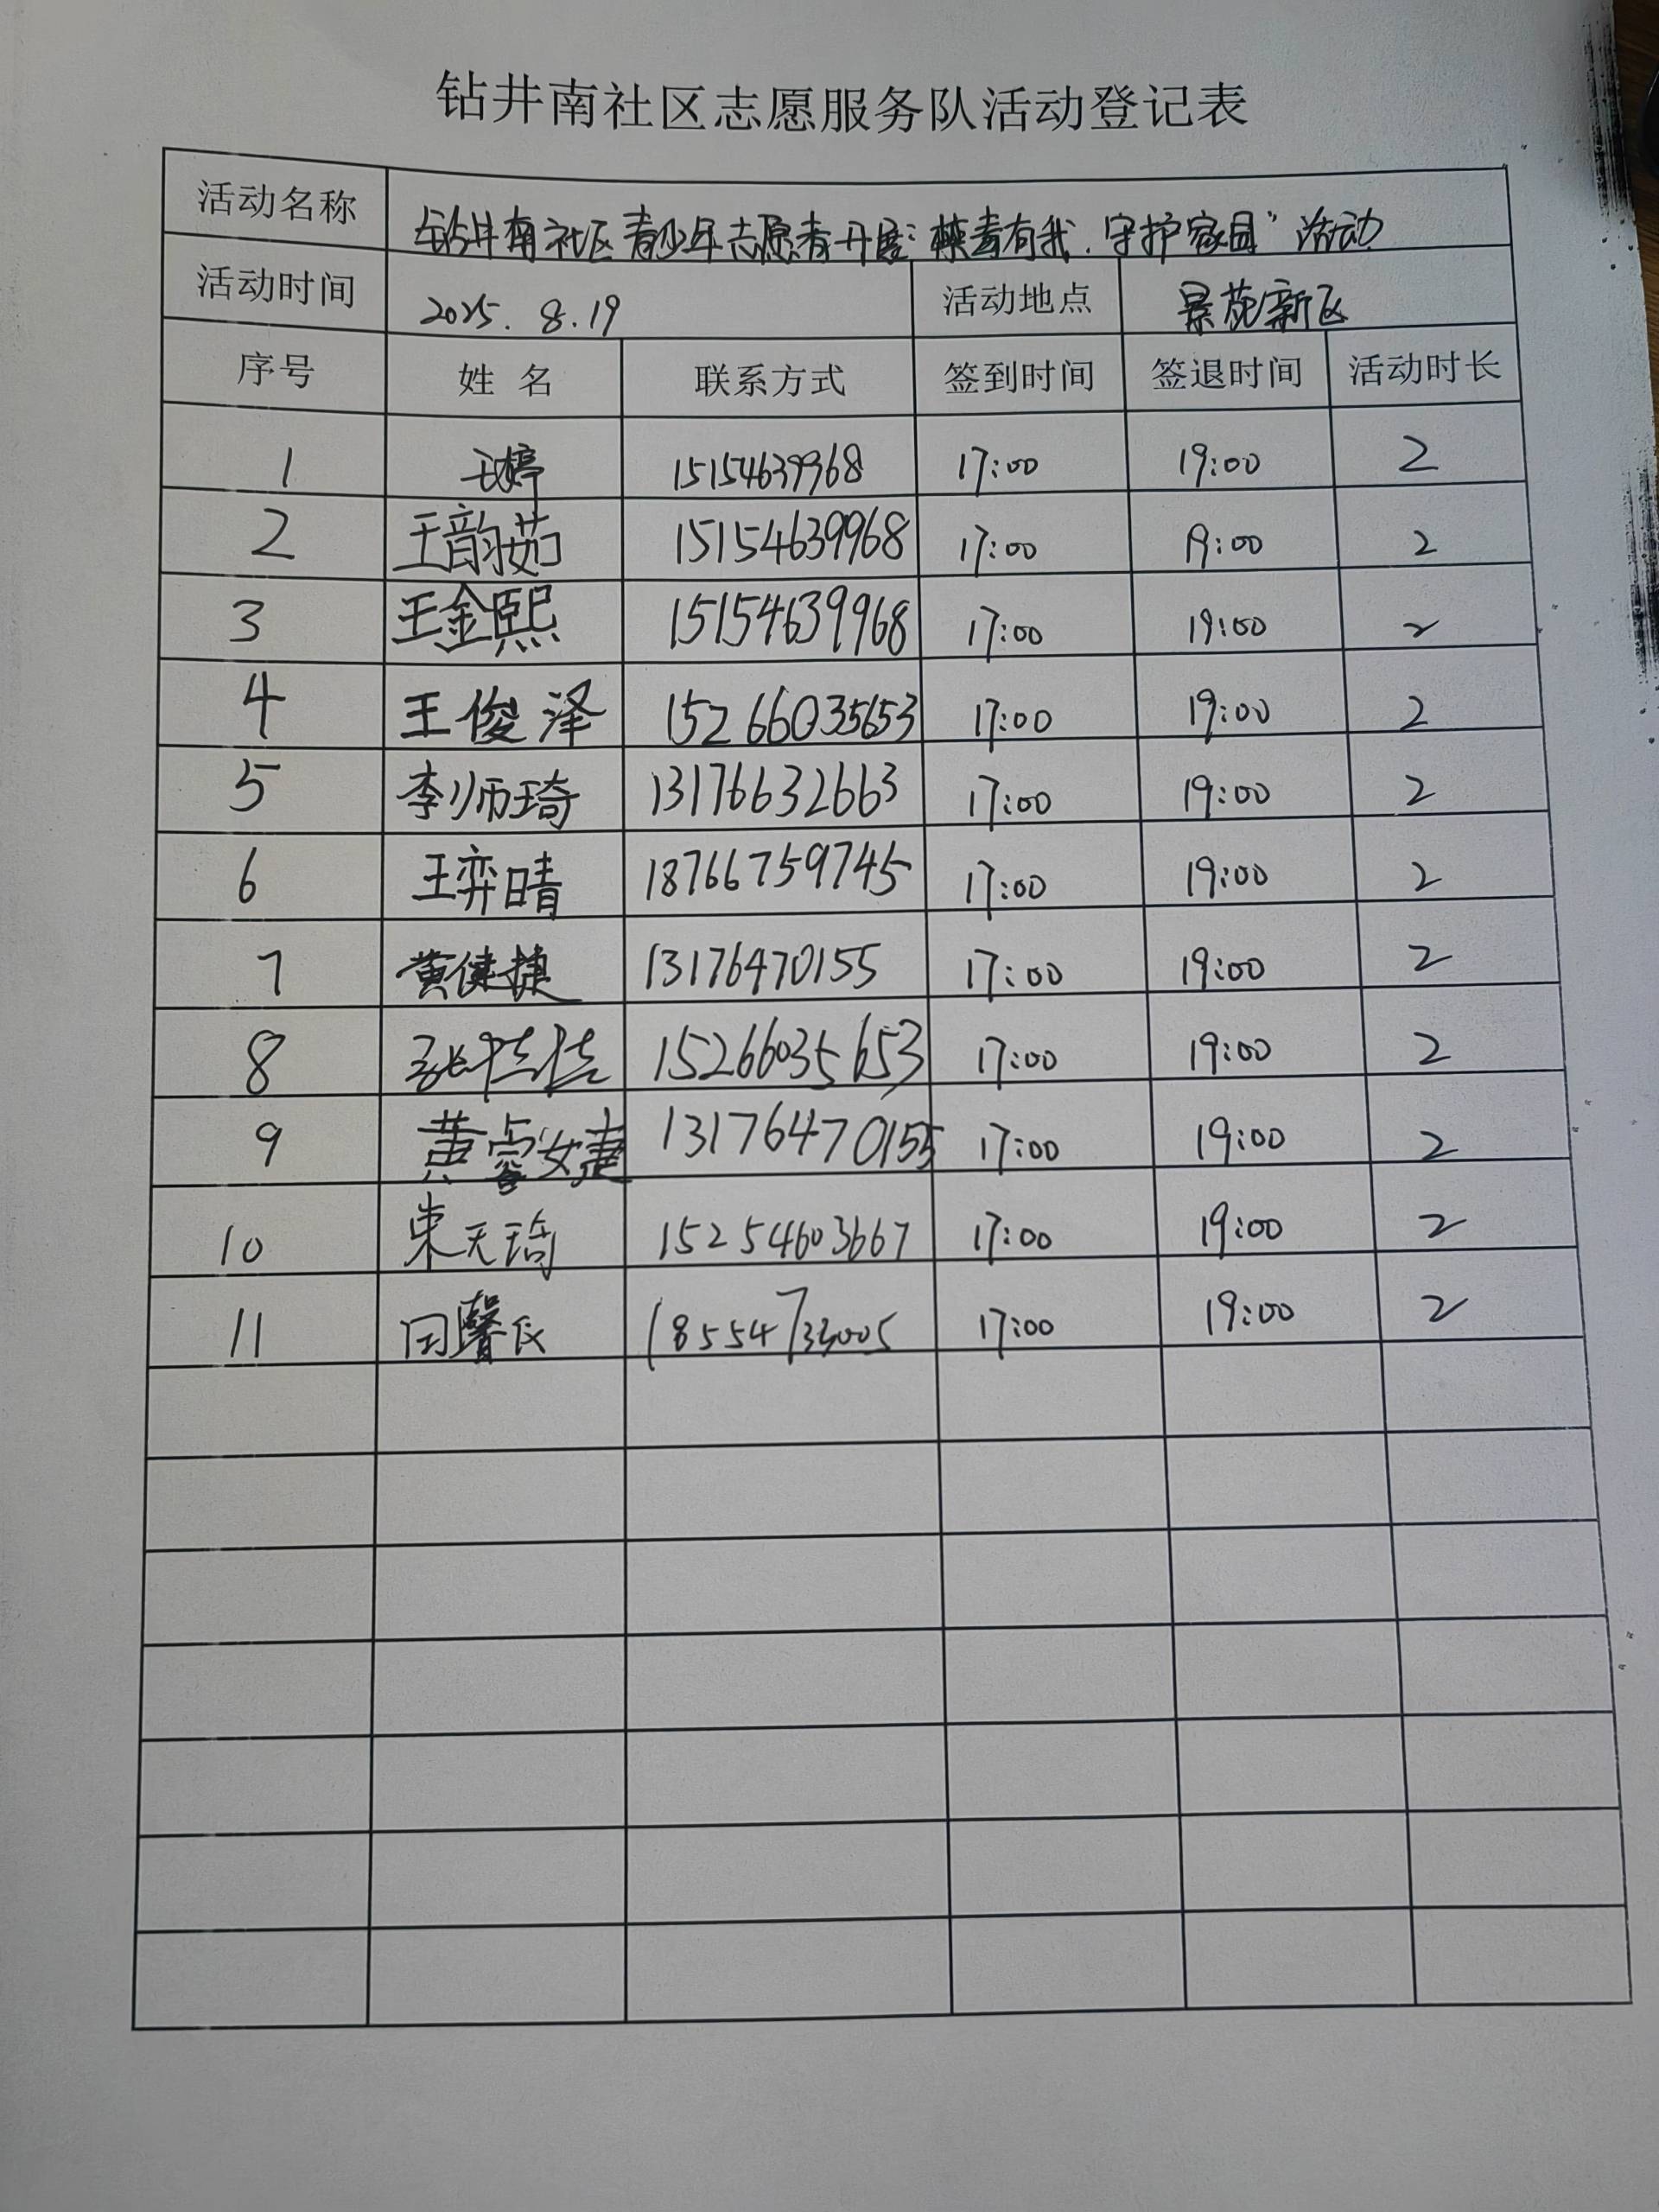 钻井南社区志愿服务队活动登记表
活动名称 钻井南社区青少年志愿者开展“禁毒有我，守护家园”活动
活动时间 2025. 8.19 活动地点 景苑新区
序号 姓 名 联系方式 签到时间 签退时间 活动时长
1 王婷 15154639968 17:00 19:00 2
2 王韵茹 15154639968 17:00 19:00 2
3 王金熙 15154639968 17:00 19:00 2
4 王俊泽 15266035653 17:00 19:00 2
5 李师琦 13176632663 17:00 19:00 2
6 王弈晴 18766759745 17:00 19:00 2
7 黄健捷 13176470155 17:00 19:00 2
8 15266035653 17:00 19:00 2
9 黄睿婕 13176470155 17:00 19:00 2
10 束天琦 15254603667 17:00 19:00 2
11 田馨仪 18554733005 17:00 19:00 2